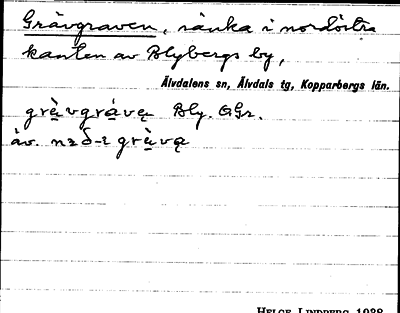 Grävgraven, sänka i nordöstra
kanten av Blybergs by,
Älvdalens sn, Älvdals tg, Kopparbergs län.
grèvgrávę Bly. OGr.
äv. nəð-ɪ grèvę
HELGE LINDBERG 1938